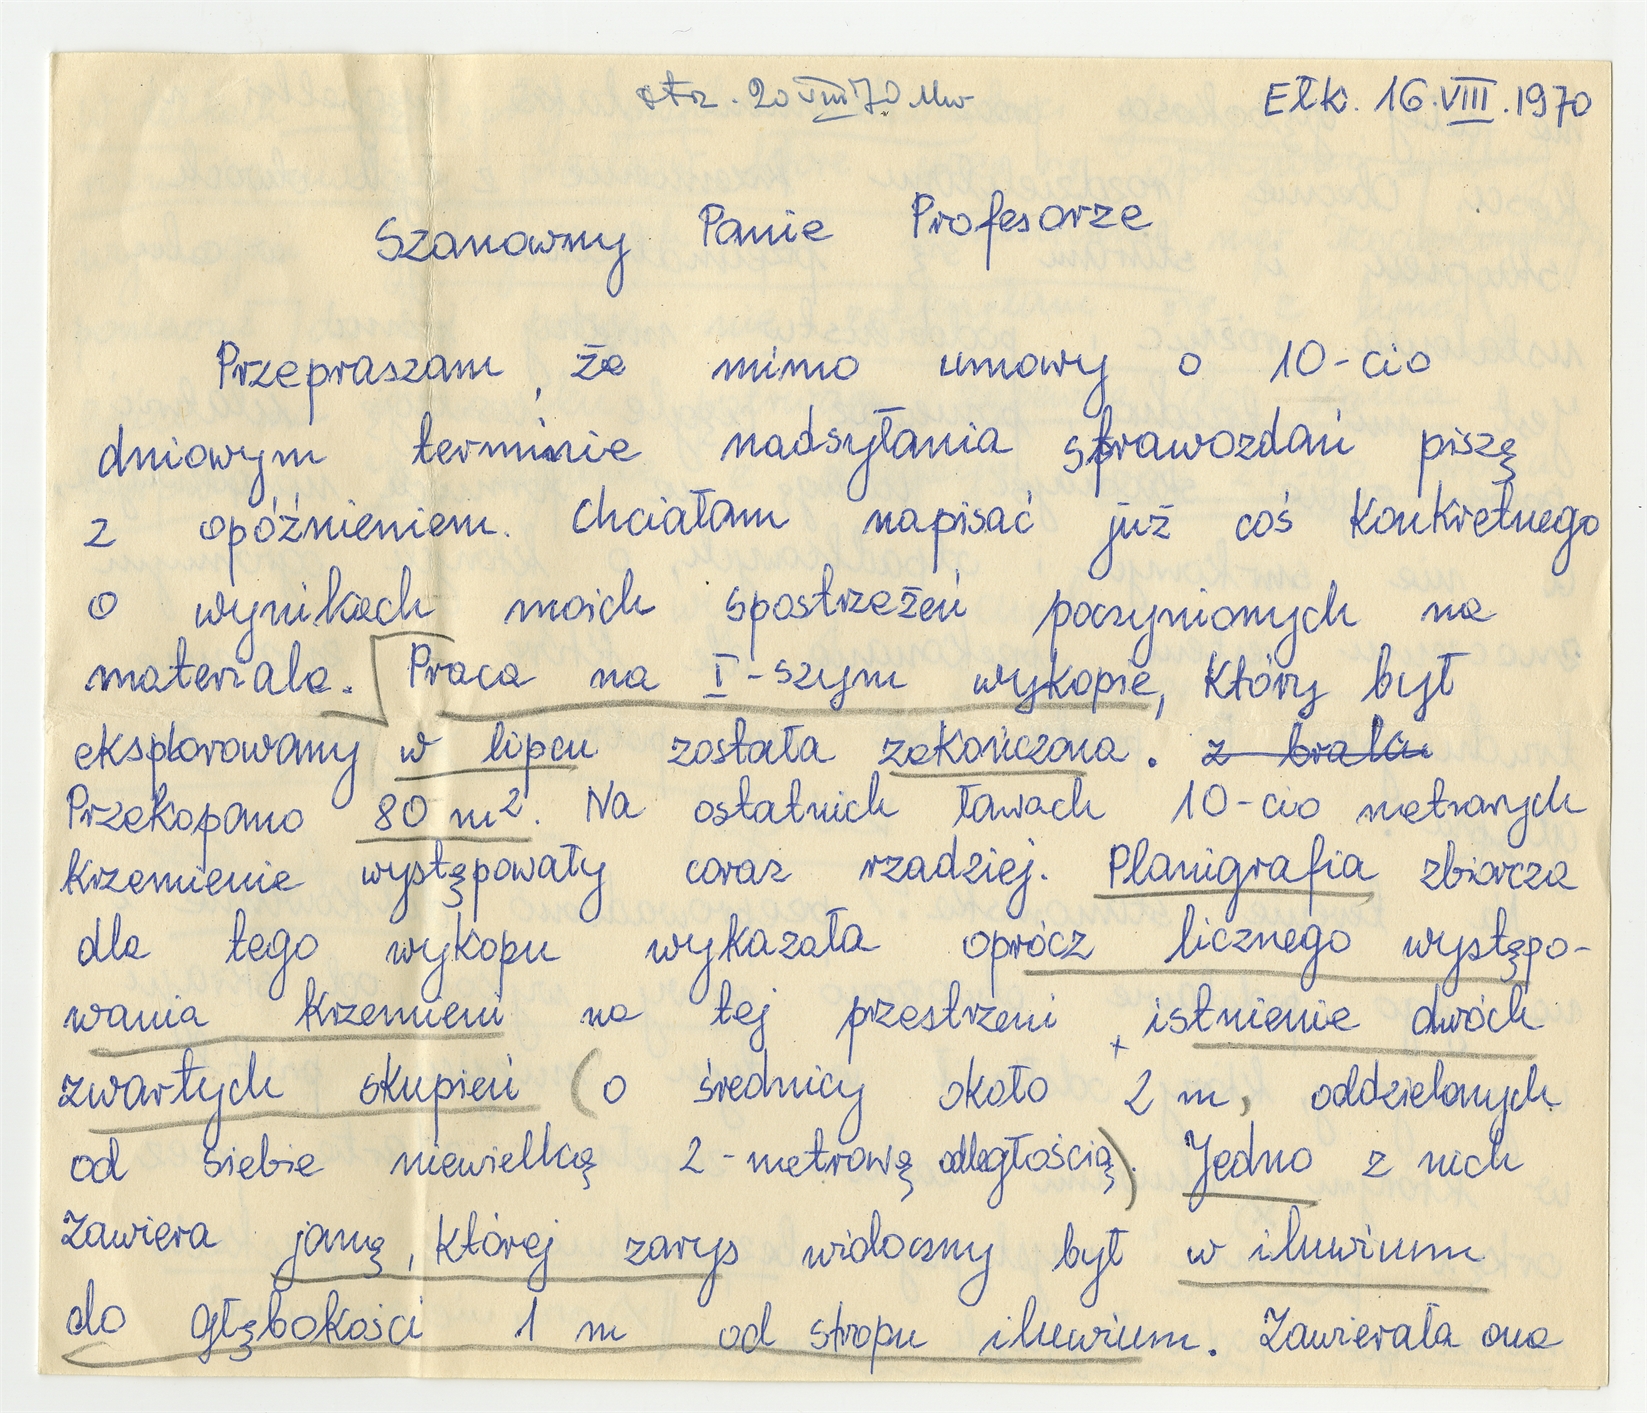 otrz. 20 VIII 70 Mw
Ełk. 16.VIII.1970
Szanowny Panie Profesorze
Przepraszam, że mimo umowy o 10-cio
dniowym terminie nadsyłania sprawozdań piszę
z opóźnieniem. Chciałam napisać już coś konkretnego
o wynikach moich spostrzeżeń poczynionych na
materiale. Praca na I-szym wykopie, który był
eksplorowany w lipcu została zakończona. z braku
Przekopano 80 m². Na ostatnich ławach 10-cio metrowych
krzemienie występowały coraz rzadziej. Planigrafia zbiorcza
dla tego wykopu wykazała oprócz licznego występo-
wania krzemieni na tej przestrzeni, istnienie dwóch
zwartych skupień (o średnicy około 2 m, oddzielonych
od siebie niewielką 2-metrową odległością). Jedno z nich
zawiera jamę, której zarys widoczny był w iluwium
do głębokości 1 m od stropu iluwium. Zawierała ona